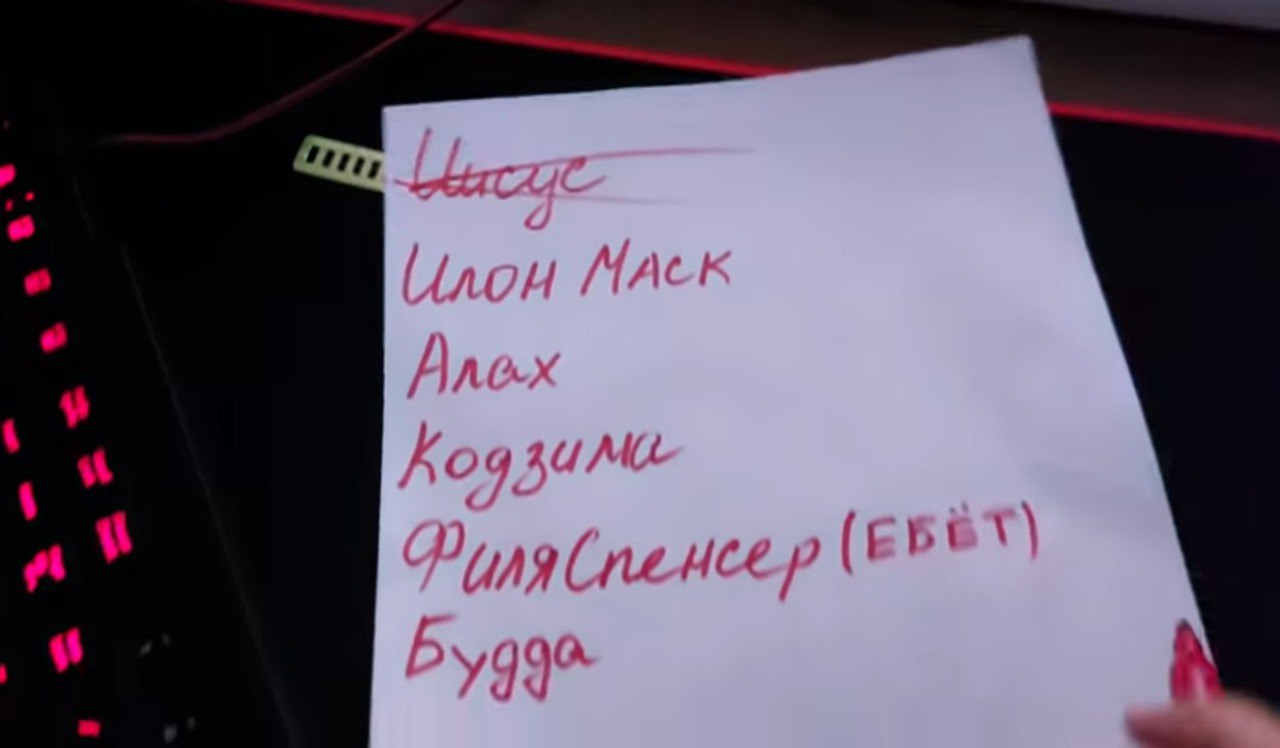 Иисус
Илон Маск
Алах
Кодзима
Филя Спенсер (ЕБЁТ)
Будда